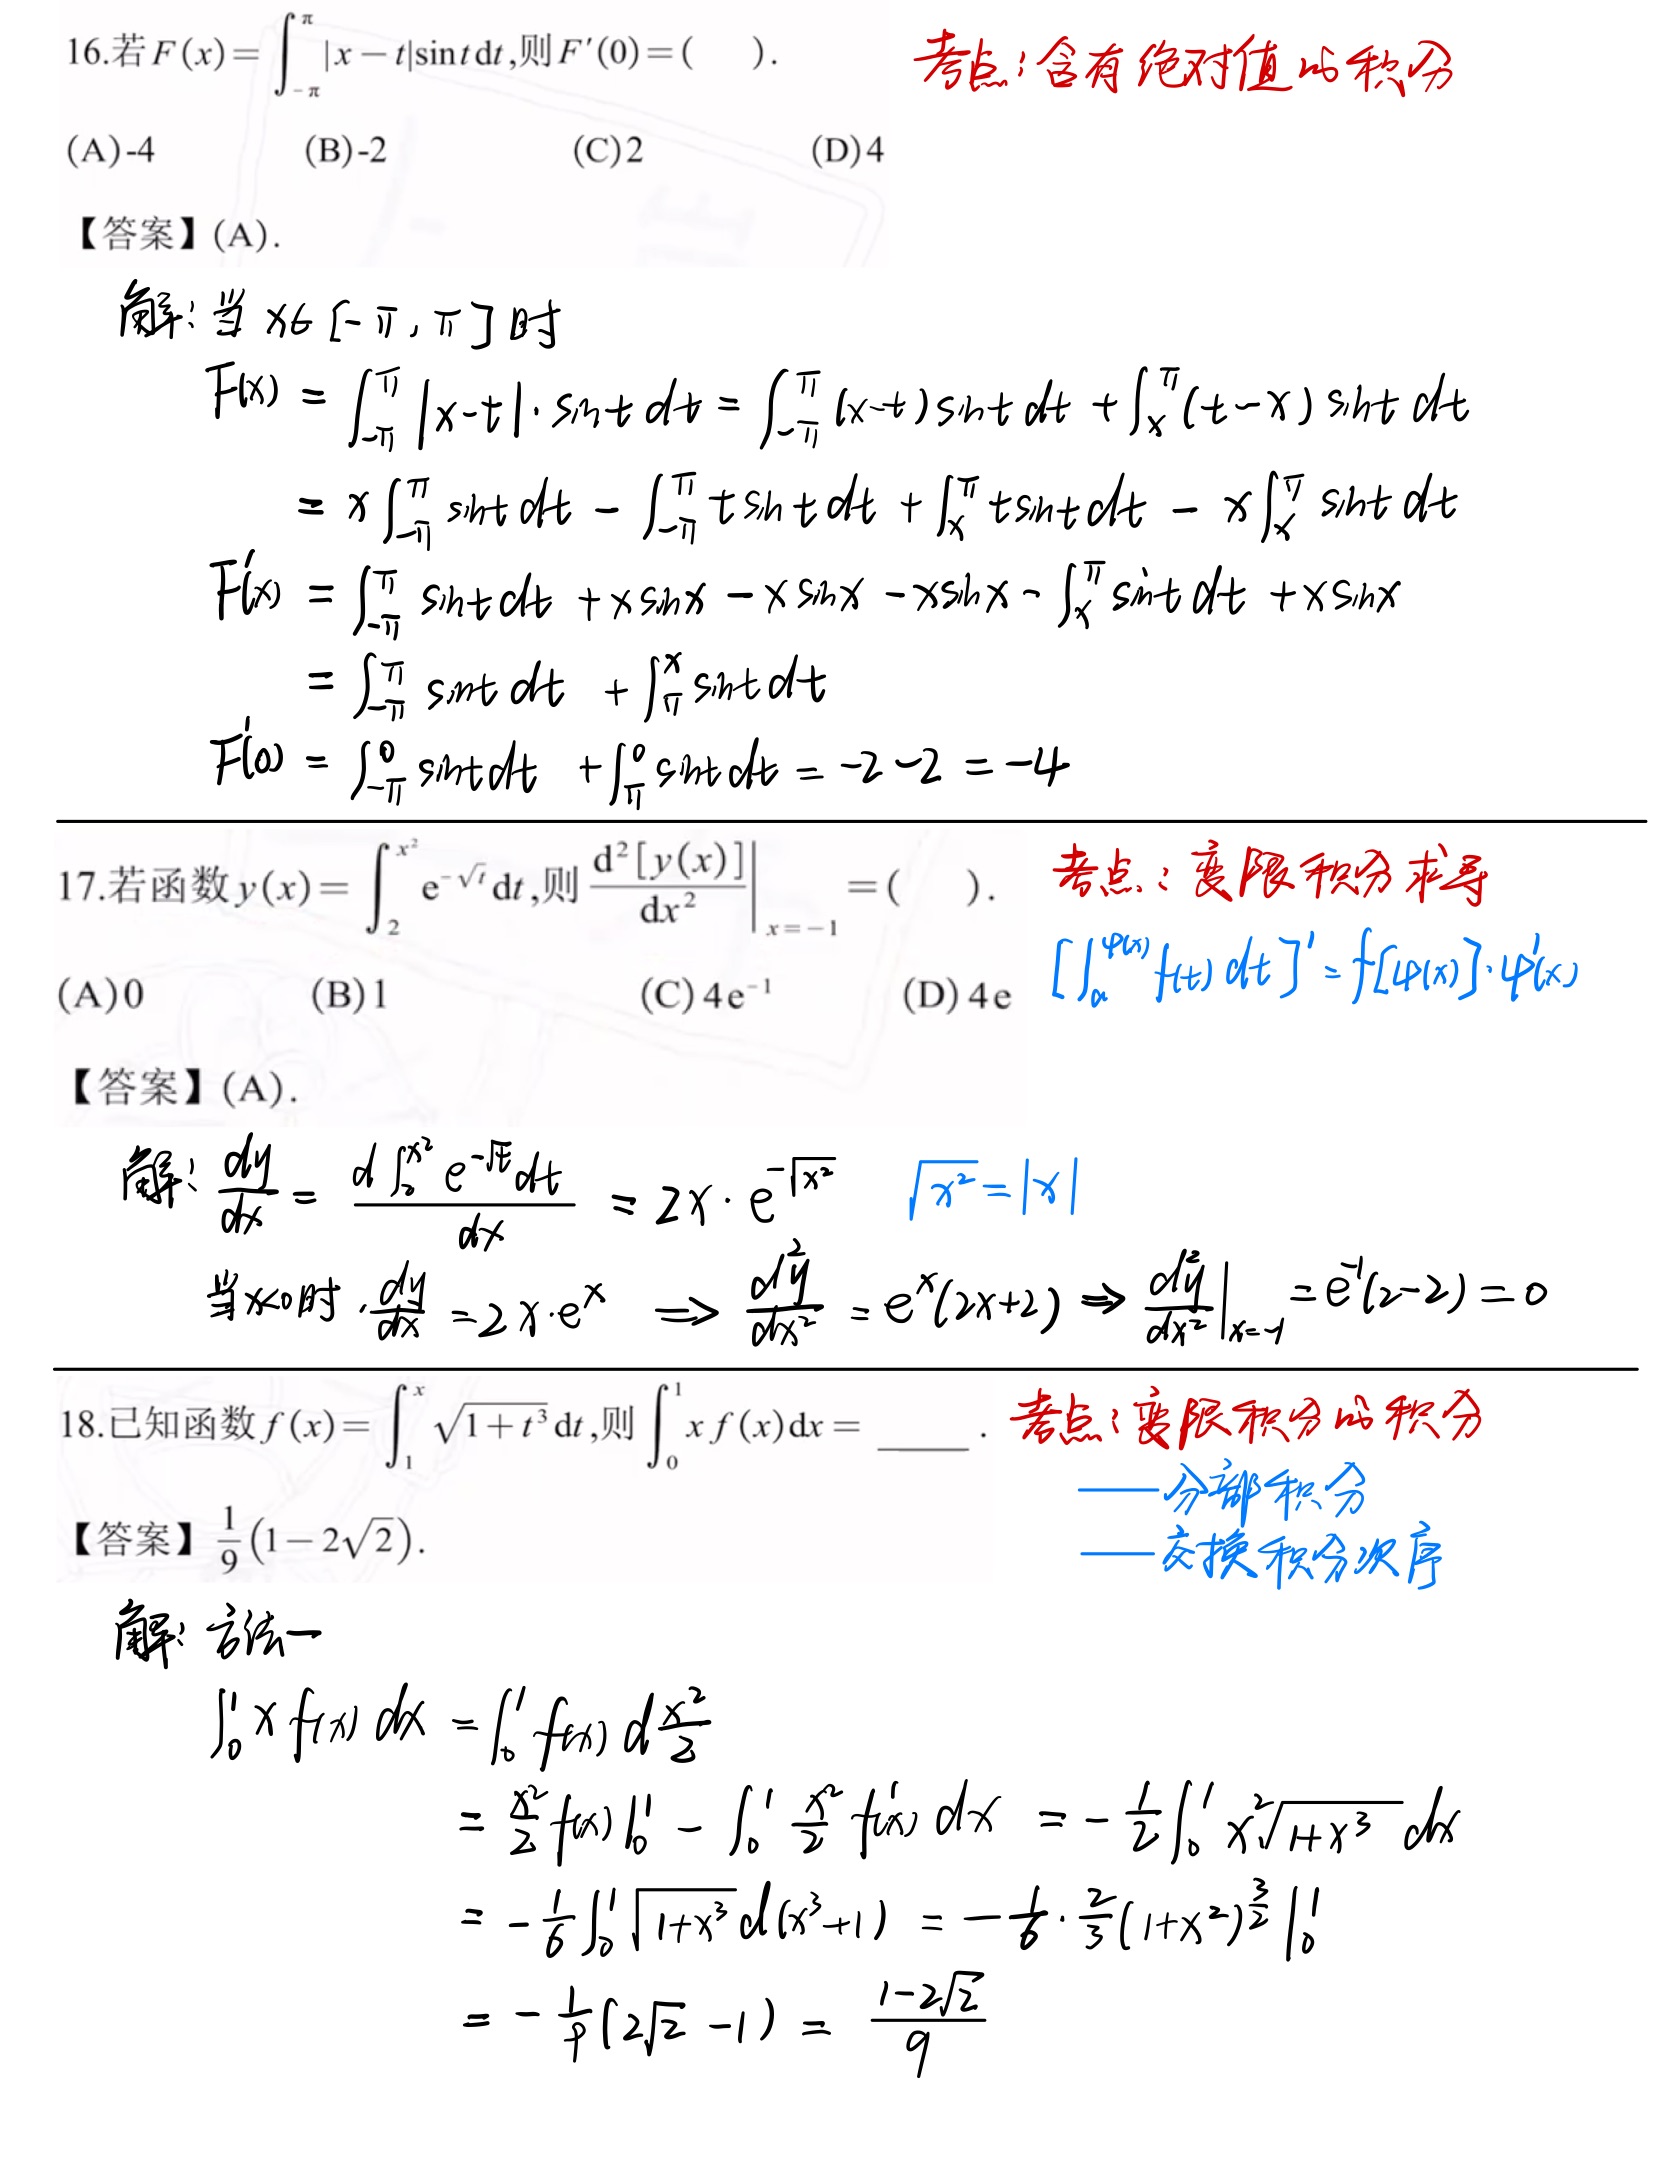 16.若F(x)=∫_{-π}^{π}|x-t|sint dt,则F′(0)=(　　). 考点:含有绝对值的积分
(A)-4 (B)-2 (C)2 (D)4
【答案】(A).
解:当 x∈[-π,π]时
F(x) = ∫_{-π}^{π}|x-t|·sint dt = ∫_{-π}^{π}(x-t)sint dt + ∫_{x}^{π}(t-x)sint dt
= x∫_{-π}^{π} sint dt - ∫_{-π}^{π} t sint dt + ∫_{x}^{π} t sint dt - x∫_{x}^{π} sint dt
F′(x) = ∫_{-π}^{π} sint dt + x sinx - x sinx - x sinx - ∫_{x}^{π} sint dt + x sinx
= ∫_{-π}^{π} sint dt + ∫_{π}^{x} sint dt
F′(0) = ∫_{-π}^{0} sint dt + ∫_{π}^{0} sint dt = -2-2 = -4
17.若函数y(x)=∫_{2}^{x²} e^{-√t} dt,则 d²[y(x)]/dx² |_{x=-1} =(　　). 考点:变限积分求导
[∫_{a}^{φ(x)} f(t) dt]′ = f[φ(x)]·φ′(x)
(A)0 (B)1 (C)4e⁻¹ (D)4e
【答案】(A).
解: dy/dx = d∫_{2}^{x²} e^{-√t} dt / dx = 2x·e^{-√x²} √x² = |x|
当x<0时,dy/dx = 2x·e^x ⇒ d²y/dx² = e^x(2x+2) ⇒ d²y/dx² |_{x=-1} = e⁻¹(2-2) = 0
18.已知函数f(x)=∫_{1}^{x} √(1+t³) dt,则∫_{0}^{1} x f(x)dx= ____ . 考点:变限积分的积分
——分部积分
【答案】1/9(1-2√2). ——交换积分次序
解:方法一
∫_{0}^{1} x f(x) dx = ∫_{0}^{1} f(x) d x²/2
= x²/2 f(x)|_{0}^{1} - ∫_{0}^{1} x²/2 f′(x) dx = -1/2 ∫_{0}^{1} x²√(1+x³) dx
= -1/6 ∫_{0}^{1} √(1+x³) d(x³+1) = -1/6·2/3(1+x²)^{3/2} |_{0}^{1}
= -1/9(2√2 -1) = (1-2√2)/9